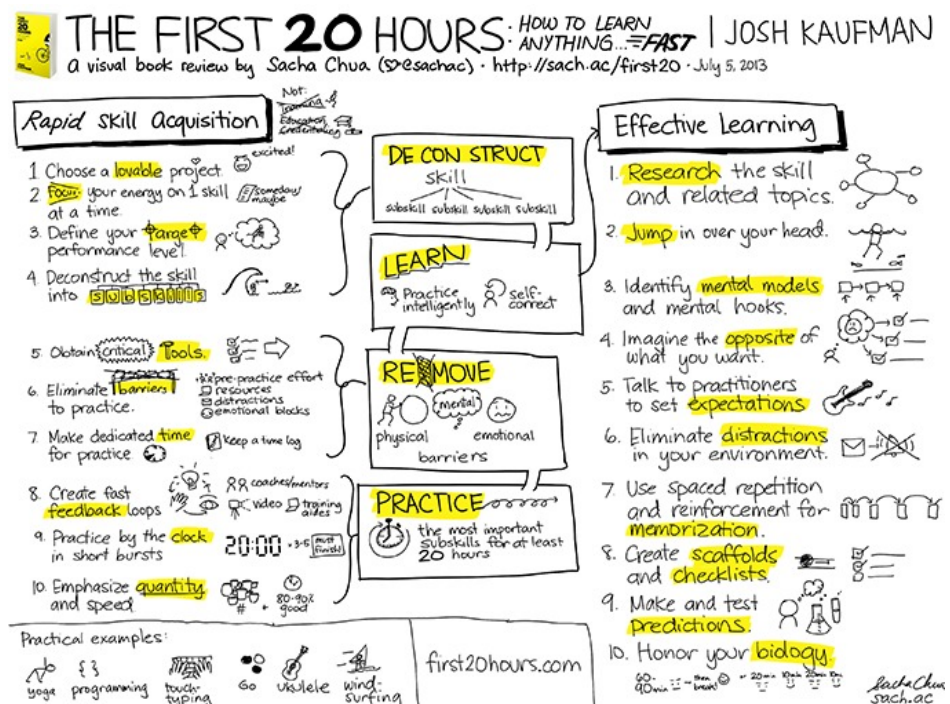 THE FIRST 20 HOURS: HOW TO LEARN ANYTHING... FAST | JOSH KAUFMAN
a visual book review by Sacha Chua (@sachac) · http://sach.ac/first20 · July 5, 2013
Rapid Skill Acquisition
Not:
Training
Education,
Credentialing
1 Choose a lovable project.
excited!
2. Focus your energy on 1 skill
at a time.
someday/
maybe
3. Define your target
performance level.
4. Deconstruct the skill
into subskills
5. Obtain critical Tools.
6. Eliminate barriers
to practice.
pre-practice effort
resources
distractions
emotional blocks
7. Make dedicated time
for practice
keep a time log
8. Create fast
feedback loops
coaches/mentors
video
training
aides
9. Practice by the clock
in short bursts
20:00 × 3-5 must
finish!
10. Emphasize quantity
and speed
#
+ 80-90%
good
DECONSTRUCT
skill
subskill subskill subskill subskill
LEARN
Practice
intelligently
self-
correct
REMOVE
physical
mental
emotional
barriers
PRACTICE
the most important
subskills for at least
20 hours
Effective Learning
1. Research the skill
and related topics.
2. Jump in over your head.
3. Identify mental models
and mental hooks.
4. Imagine the opposite of
what you want.
5. Talk to practitioners
to set expectations
6. Eliminate distractions
in your environment.
7. Use spaced repetition
and reinforcement for
memorization.
8. Create scaffolds
and checklists.
9. Make and test
predictions.
10. Honor your biology.
60-
90min → then
break!
or 20min 10min 20min 10m
Practical examples:
yoga
{ }
programming
touch-
typing
Go
ukulele
wind-
surfing
first20hours.com
Sacha Chua
sach.ac